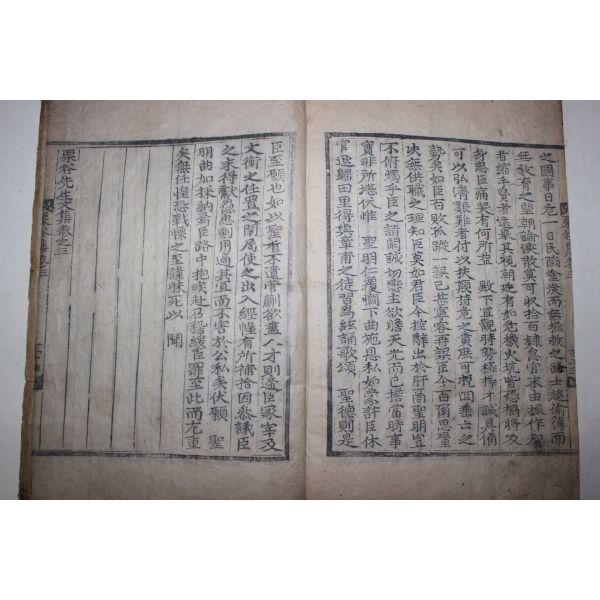 之國事日危一日民陷塗炭而無拯救之路士趨偷薄而
無敎育之望朝論渙散莫可收拾百隷怠官末由振作智
者縮手賢者懷寶其視朝廷有如危機火坑皆恐禍將及
身思臣痛哭有何所益 殿下宜觀時勢極擇才誠具備
可以弘濟艱難者付以扶顚持危之責庶可挽回垂亡之
勢矣如臣百敗孤蹤一誤已甚寧容再誤臣今百爾思量
決無供職之理知臣莫如君臣今控辭出於肝膈聖明豈
不俯燭乎臣之請闕誠切戀主欲瞻天光而已擔當時事
實非所堪伏惟 聖明仁覆憫下曲施恩私如蒙許臣休
官退歸田里得與華甫之徒習爲絃誦歌頌 聖德則是
臣至願也如以聖者不遺菅蒯欲盡人才則遞臣冢宰及
文衡之任置之閒局使之出入經幄有所補拾因參議臣
之末得獻愚忠則用適其宜而不害於公私矣伏願 聖
明曲加採納焉臣路中抱疾赴召稽緩臣罪至此而尤重
矣無任惶恐戰慄之至謹昧死以 聞
栗谷先生文集卷之三